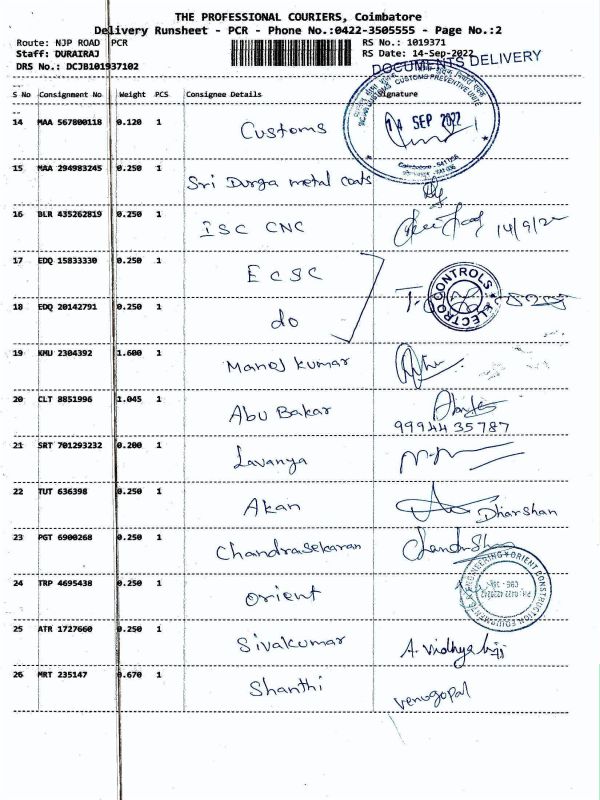 THE PROFESSIONAL COURIERS, Coimbatore
Delivery Runsheet - PCR - Phone No.:0422-3505555 - Page No.:2
Route: NJP ROAD PCR
RS No.: 1019371
Staff: DURAIRAJ
RS Date: 14-Sep-2022
DRS No.: DCJB101937102
DOCUMENTS DELIVERY
S No Consignment No Weight PCS Consignee Details Signature
14 MAA 567800118 0.120 1 Customs
14 SEP 2022
15 MAA 294983245 0.250 1 Sri Durga metal coats
16 BLR 435262819 0.250 1 ISC CNC 14/9/22
17 EDQ 15833330 0.250 1 ECSC
ELECTRO CONTROLS
18 EDQ 20142791 0.250 1 do
19 KMU 2304392 1.600 1 Manoj kumar
20 CLT 8851996 1.045 1 Abu Bakar
9994435787
21 SRT 701293232 0.200 1 Lavanya
22 TUT 636398 0.250 1 Akan Dharshan
23 PGT 6900268 0.250 1 Chandrasekaran
24 TRP 4695438 0.250 1 Orient
ORIENT CONSTRUCTION EQUIPMENTS & ENGINEERING
25 ATR 1727660 0.250 1 Sivakumar A. Vidhya
26 MRT 235147 0.670 1 Shanthi venugopal